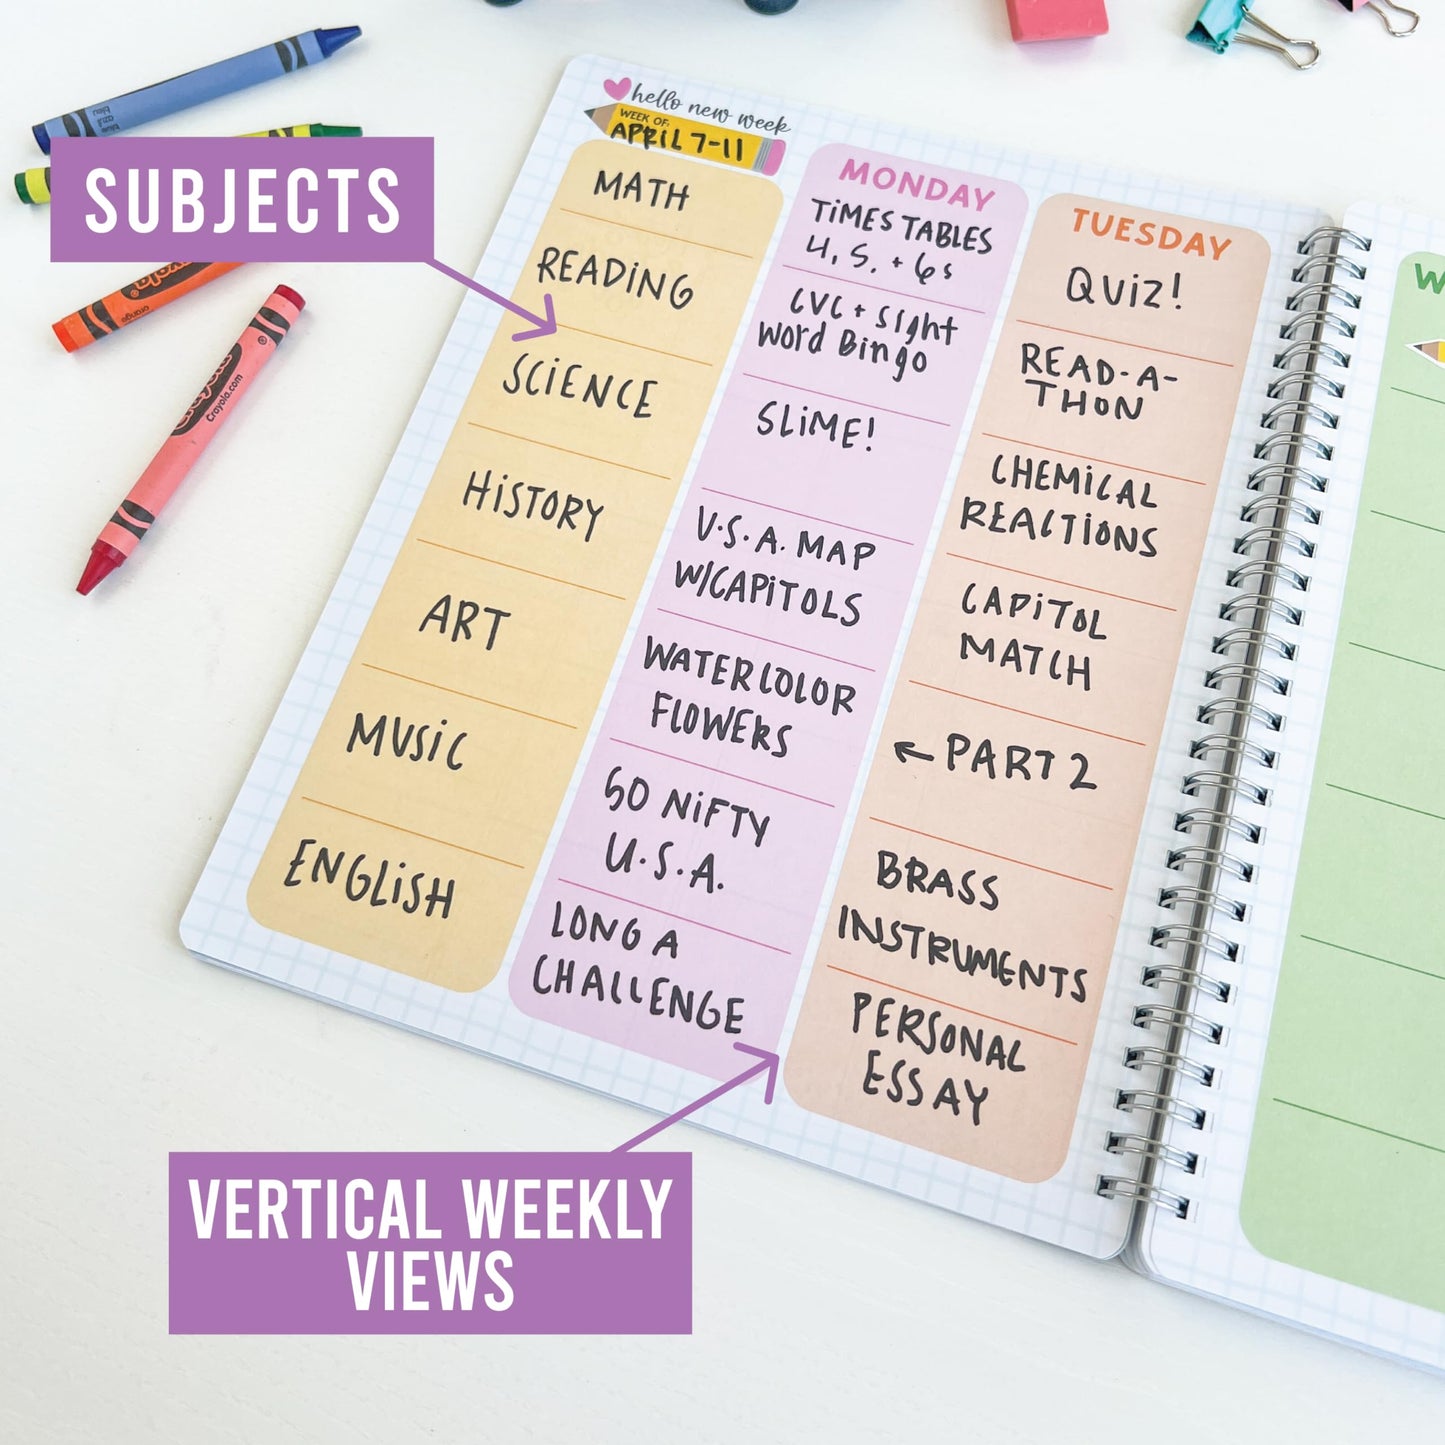 hello new week
WEEK OF:
APRIL 7-11
SUBJECTS
MATH
READING
SCIENCE
HISTORY
ART
MUSIC
ENGLISH
MONDAY
TIMES TABLES
4, 5, + 6s
CVC + Sight
Word Bingo
SLIME!
U.S.A. MAP
W/CAPITOLS
WATERCOLOR
FLOWERS
50 NIFTY
U.S.A.
LONG A
CHALLENGE
TUESDAY
QUIZ!
READ-A-
THON
CHEMICAL
REACTIONS
CAPITOL
MATCH
← PART 2
BRASS
INSTRUMENTS
PERSONAL
ESSAY
W
VERTICAL WEEKLY
VIEWS
Crayola.com
orange
blue
bleu